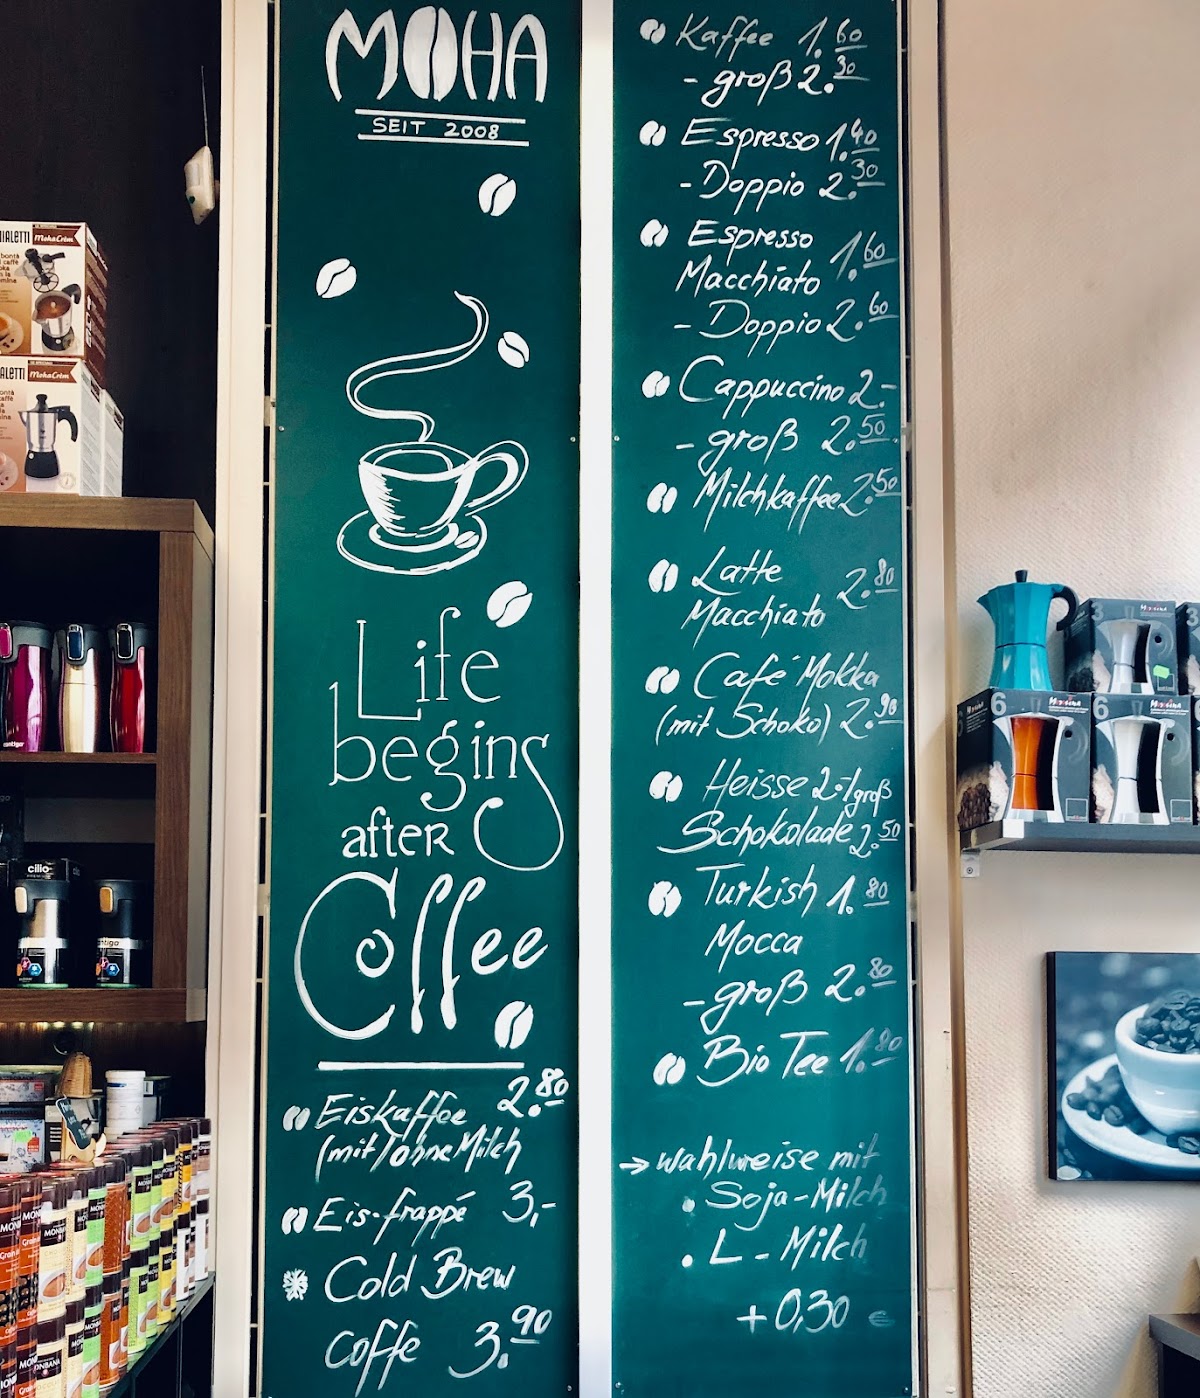 MOHA
SEIT 2008
Life
begins
after
Coffee
Eiskaffee 2.80
(mit/ohne Milch
Eis-frappé 3,-
Cold Brew
Coffe 3.90
Kaffee 1.60
- groß 2.30
Espresso 1.40
- Doppio 2.30
Espresso
Macchiato 1.60
- Doppio 2.60
Cappuccino 2.-
- groß 2.50
Milchkaffee 2.50
Latte
Macchiato 2.80
Café Mokka
(mit Schoko) 2.90
Heisse 2.-/groß
Schokolade 2.50
Turkish 1.80
Mocca
- groß 2.80
Bio Tee 1.80
→ wahlweise mit
• Soja-Milch
• L-Milch
+0,30 €
IALETTI
MokaCrèm
ALETTI
MokaCrèm
contigo
cilio
MONBANA
3
6
6